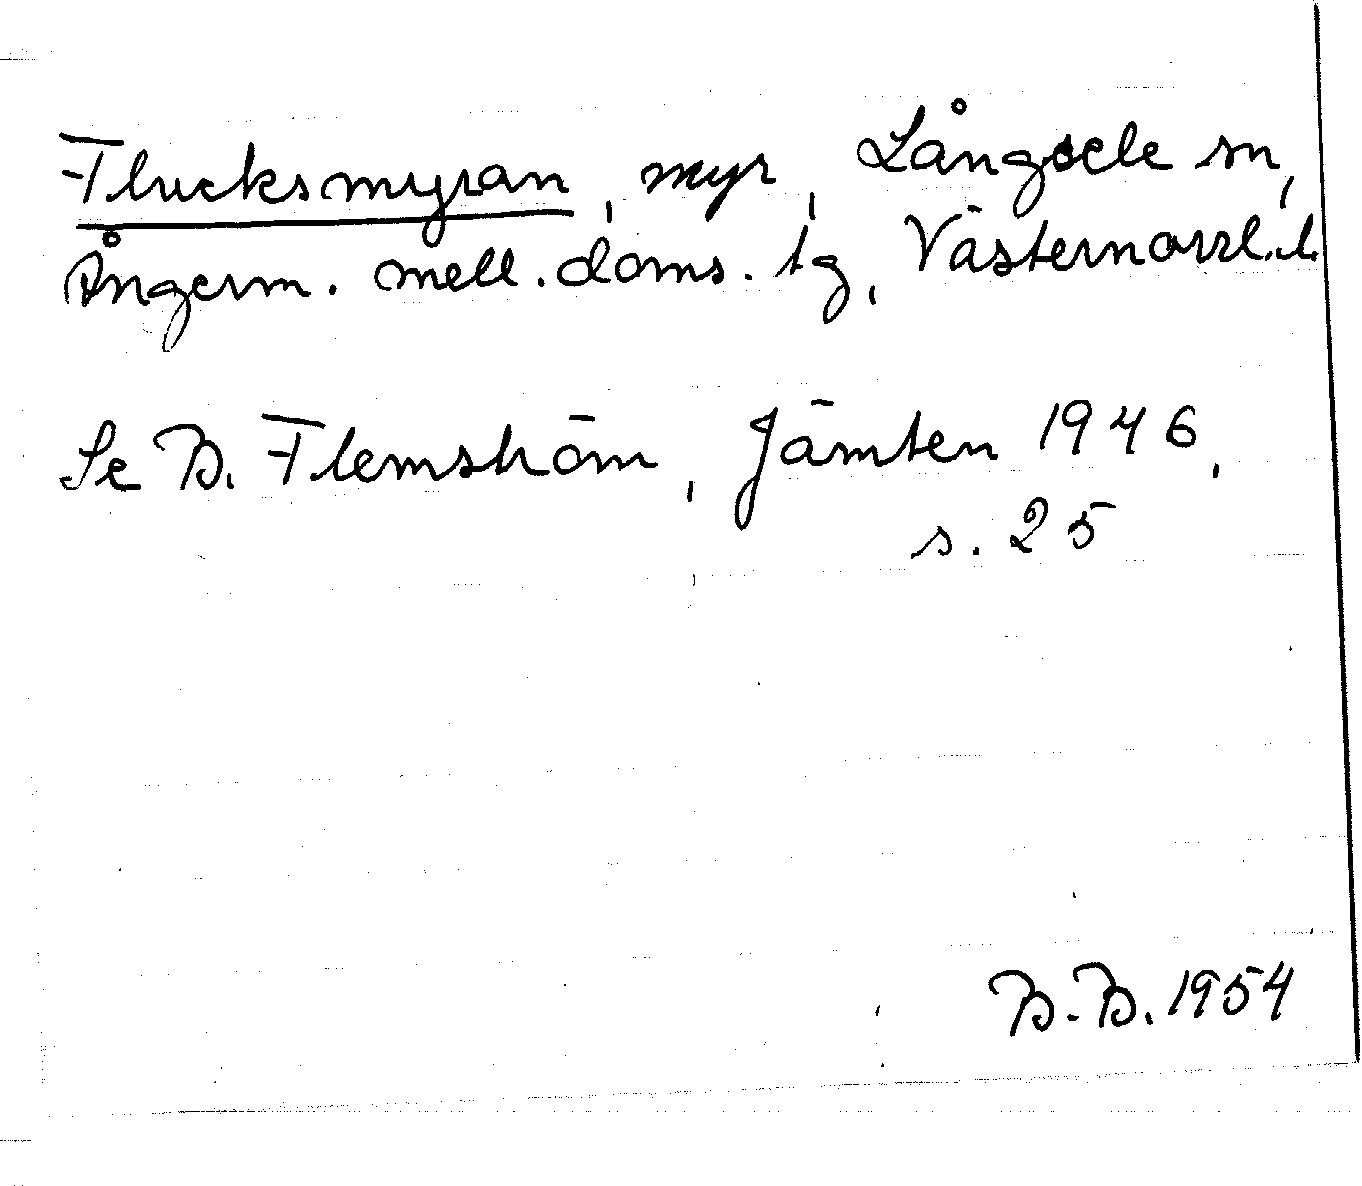 Flucksmyran, myr, Långsele sn,
Ångerm. mell. doms. tg, Västernorrl. l.
Se B. Flemström, Jämten 1946,
s. 25
B.B. 1954